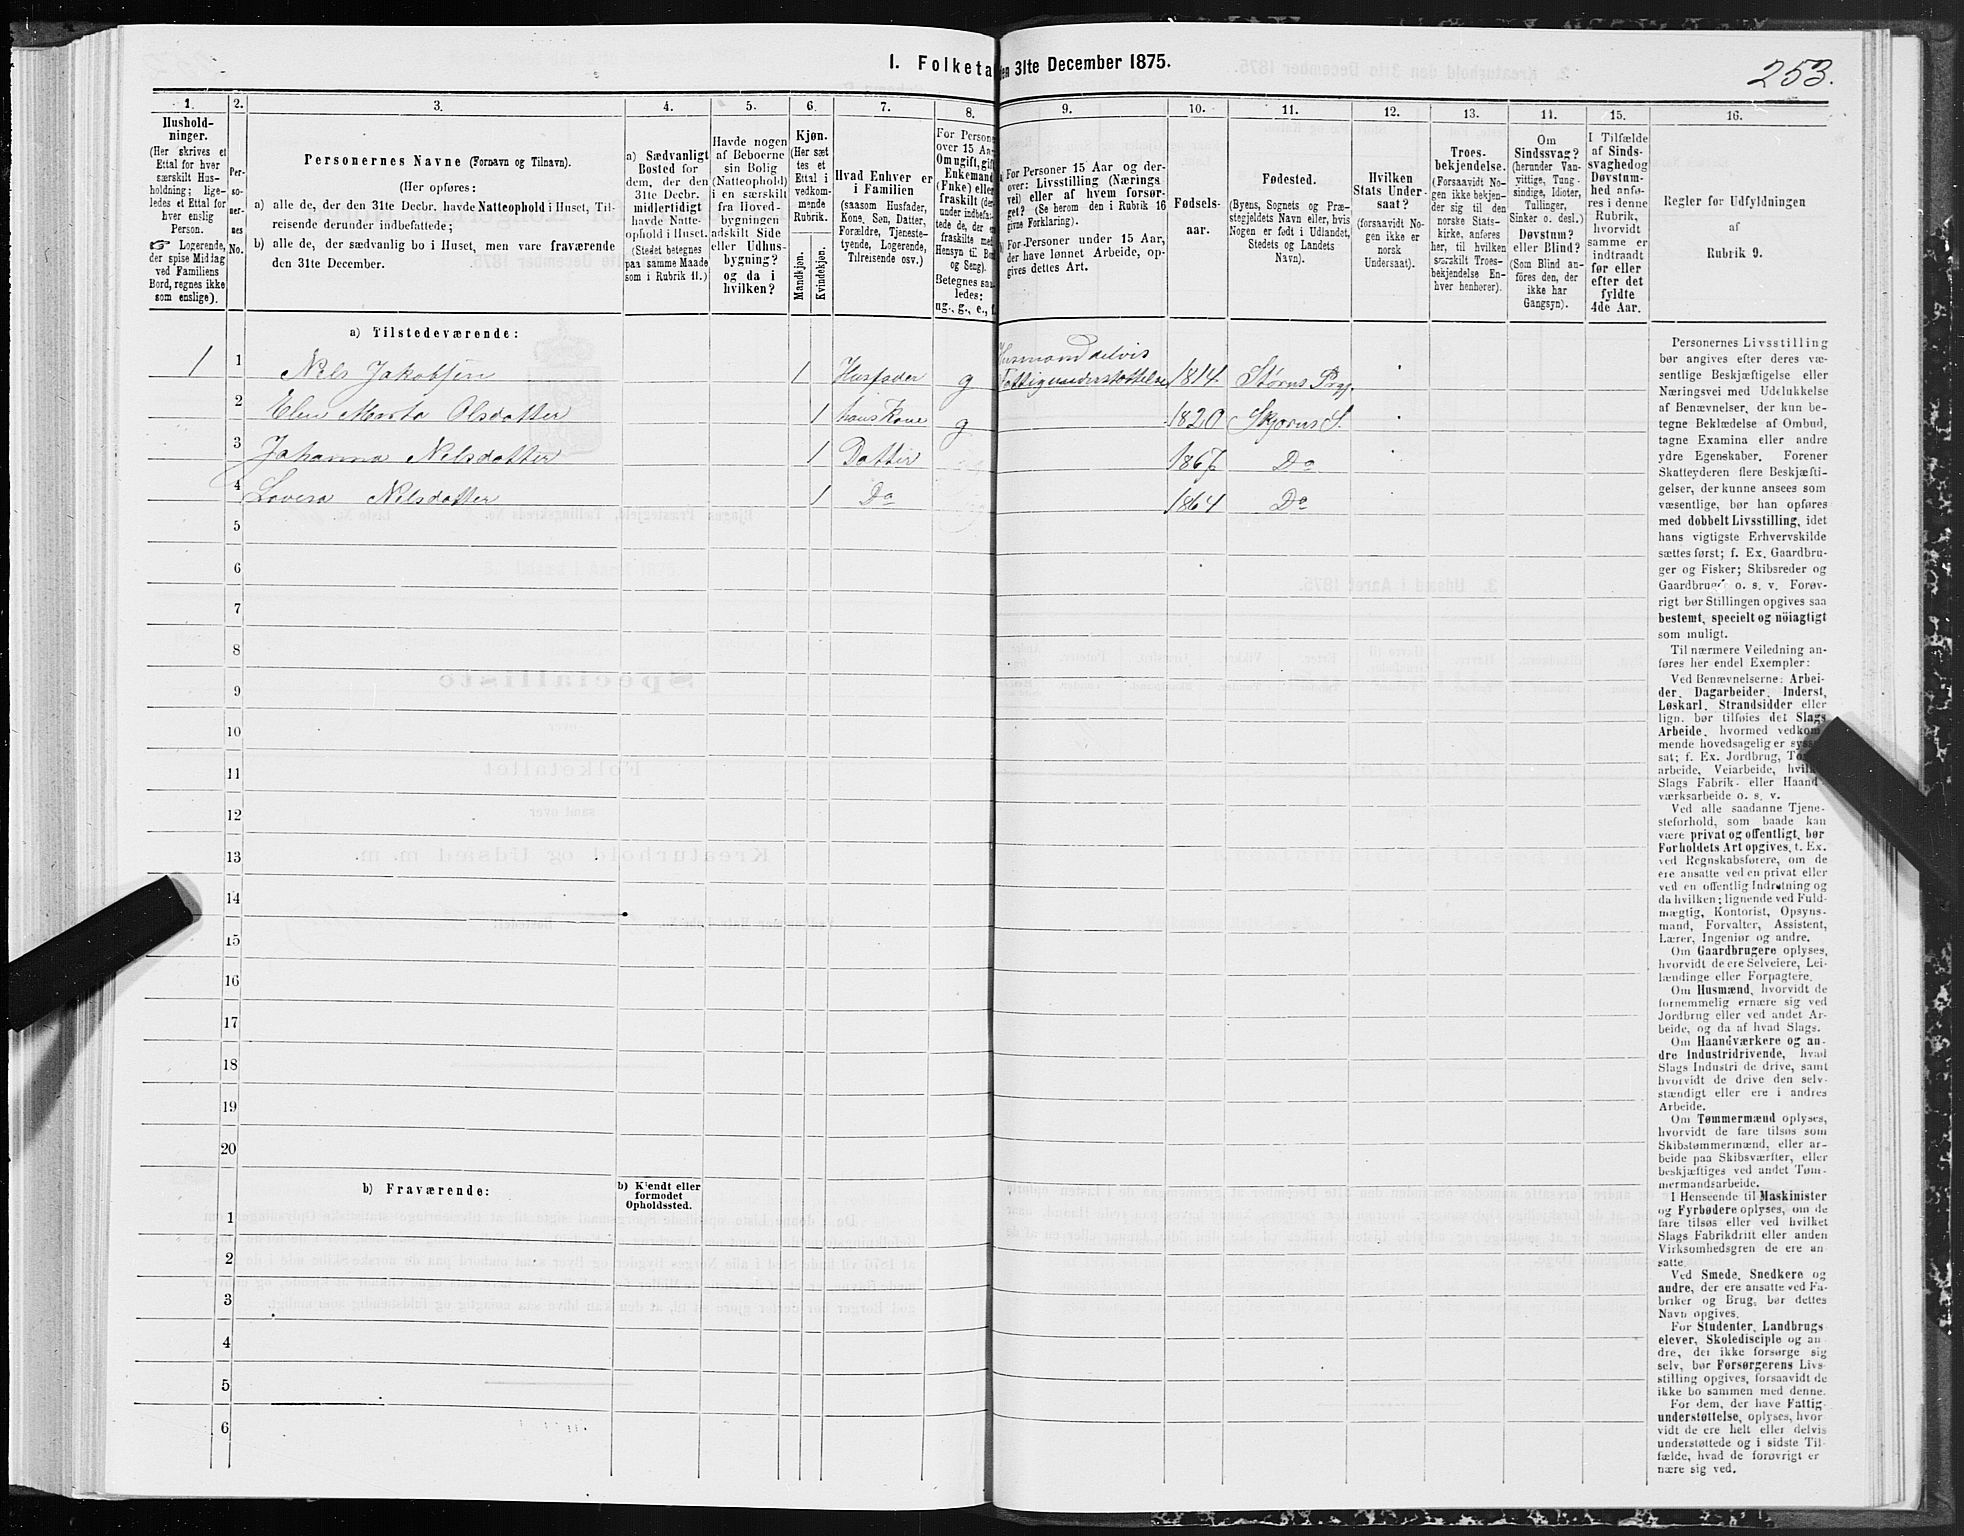 I. Folketa
den 31te December 1875.
253.
1.
2.
3.
4.
5.
6.
7.
8.
9.
10.
11.
12.
13.
14.
15.
16.
Hushold-
ninger.
(Her skrives et
Ettal for hver
særskilt Hus-
holdning; lige-
ledes et Ettal for
hver enslig
Person.
☞ Logerende,
der spise Middag
ved Familiens
Bord, regnes ikke
som enslige).
Per-
so-
ner-
nes
No.
Personernes Navne (Fornavn og Tilnavn).
(Her opføres:
a) alle de, der den 31te Decbr. havde Natteophold i Huset, Til-
reisende derunder indbefattede;
b) alle de, der sædvanlig bo i Huset, men vare fraværende
den 31te December.
a) Sædvanligt
Bosted for
dem, der den
31te Decbr.
midlertidigt
havde Natte-
ophold i Huset.
(Stedet betegnes
paa samme Maade
som i Rubrik 11.)
Havde nogen
af Beboerne
sin Bolig
(Natteophold)
i en særskilt
fra Hoved-
bygningen
adskilt Side
eller Udhus-
bygning?
og da i
hvilken?
Kjøn.
(Her sæt
tes et
Ettal i
vedkom-
mende
Rubrik.
Mandkjøn.
Kvindekjøn.
Hvad Enhver er
i Familien
(saasom Husfader,
Kone, Søn, Datter,
Forældre, Tjeneste-
tyende, Logerende,
Tilreisende osv.)
For Persone
over 15 Aar
Om ugift, gift
Enkemand
(Enke) eller
fraskilt (der
under indbefat-
tede de, der er
fraskilte med
Hensyn til Bord
og Seng).
Betegnes saa-
ledes:
ug., g., e., f.
a) For Personer 15 Aar og der-
over: Livsstilling (Nærings
vei) eller af hvem forsør-
get? (Se herom den i Rubrik 16
givne Forklaring).
b) For Personer under 15 Aar,
der have lønnet Arbeide, op-
gives dettes Art.
Fødsels-
aar.
Fødested.
(Byens, Sognets og Præ-
stegjeldets Navn eller, hvis
Nogen er født i Udlandet,
Stedets og Landets
Navn).
Hvilken
Stats Under-
saat?
(forsaavidt No-
gen ikke er
norsk
Undersaat).
Troes-
bekjendelse.
(Forsaavidt No-
gen ikke bekjen-
der sig til den
norske Stats-
kirke, anføres
her, til hvilken
særskilt Troes-
bekjendelse En-
hver henhører).
Om
Sindssvag?
(herunder Van-
vittige, Tung-
sindige, Idioter,
Tullinger,
Sinker o. desl.)
Døvstum?
eller Blind?
(Som Blind an-
føres den, der
ikke har
Gangsyn).
I Tilfælde
af Sinds-
svaghed og
Døvstum-
hed anfø-
res i denne
Rubrik,
hvorvidt
samme er
indtraadt
før eller
efter det
fyldte
4de Aar.
Regler for Udfyldningen
af
Rubrik 9.
a) Tilstedeværende:
1 1 Nels Jakobsen 1 Husfader g Husmand delvis
Fattigunderstøttelse 1814 Størens Prgj.
2 Elen Marta Olsdatter 1 hans Kone g 1820 Skjørns S.
3 Johanna Nelsdatter 1 Datter 1867 Do
4 Lovisa Nilsdatter 1 Do 1864 Do
5
6
7
8
9
10
11
12
13
14
15
16
17
18
19
20
b) Fraværende:
b) Kjendt eller
formodet
Opholdssted.
1
2
3
4
5
6
Personernes Livsstilling
bør angives efter deres væ-
sentlige Beskjæftigelse eller
Næringsvei med Udelukkelse
af Benævnelser, der kun be-
tegne Beklædelse af Ombud,
tagne Examina eller andre
ydre Egenskaber. Forener
Skatteyderen flere Beskjæfti-
gelser, der kunne ansees som
væsentlige, bør han opføres
med dobbelt Livsstilling, idet
hans vigtigste Erhvervskilde
sættes først; f. Ex. Gaardbru-
ger og Fisker; Skibsreder og
Gaardbruger o. s. v. Forøv-
rigt bør Stillingen opgives saa
bestemt, specielt og nöiagtigt
som muligt.
Til nærmere Veiledning an-
føres her endel Exempler:
Ved Benævnelserne: Arbei-
der, Dagarbeider, Inderst,
Løskarl, Strandsidder eller
lign. bør tilføies det Slags
Arbeide, hvormed vedkom-
mende hovedsagelig er syssel
sat; f. Ex. Jordbrug, Tom
arbeide, Veiarbeide, hvilket
Slags Fabrik- eller Haand-
værksarbeide o. s. v.
Ved alle saadanne Tjene-
steforhold, som baade kan
være privat og offentligt, bør
Forholdets Art opgives, t. Ex.
ved Regnskabsførere, om de
ere ansatte ved en privat eller
ved en offentlig Indretning og
da hvilken; lignende ved Fuld-
mægtig, Kontorist, Opsyns-
mand, Forvalter, Assistent,
Lærer, Ingeniør og andre.
Om Gaardbrugere oplyses,
hvorvidt de ere Selveiere, Lei-
lændinge eller Forpagtere.
Om Husmænd, hvorvidt de
fornemmelig ernære sig ved
Jordbrug eller ved andet Ar-
beide, og da af hvad Slags.
Om Haandværkere og an-
dre Industridrivende, hvad
Slags Industri de drive, samt
hvorvidt de drive den selv-
stændigt eller ere i andres
Arbeide.
Om Tømmermænd oplyses,
hvorvidt de fare tilsøs som
Skibstømmermænd, eller ar-
beide paa Skibsværfter, eller
beskjæftiges ved andet Tøm-
mermandsarbeide.
I Henseende til Maskinister
og Fyrbødere oplyses, om de
fare tilsøs eller ved hvilket
Slags Fabrikdrift eller anden
Virksomhedsgren de ere an-
satte.
Ved Smede, Snedkere og
andre, der ere ansatte ved Fa-
briker og Brug, bør dettes
Navn opgives.
For Studenter, Landbrugs
elever, Skoledisciple og an
dre, der ikke forsørge sig
selv, bør Forsørgerens Livs-
stilling opgives, forsaavidt de
ikke bo sammen med denne.
For dem, der have Fattig-
understøttelse, oplyses, hvor-
vidt de ere helt eller delvis
understøttede og i sidste Til-
fælde, hvad de forøvrigt er
nære sig ved.